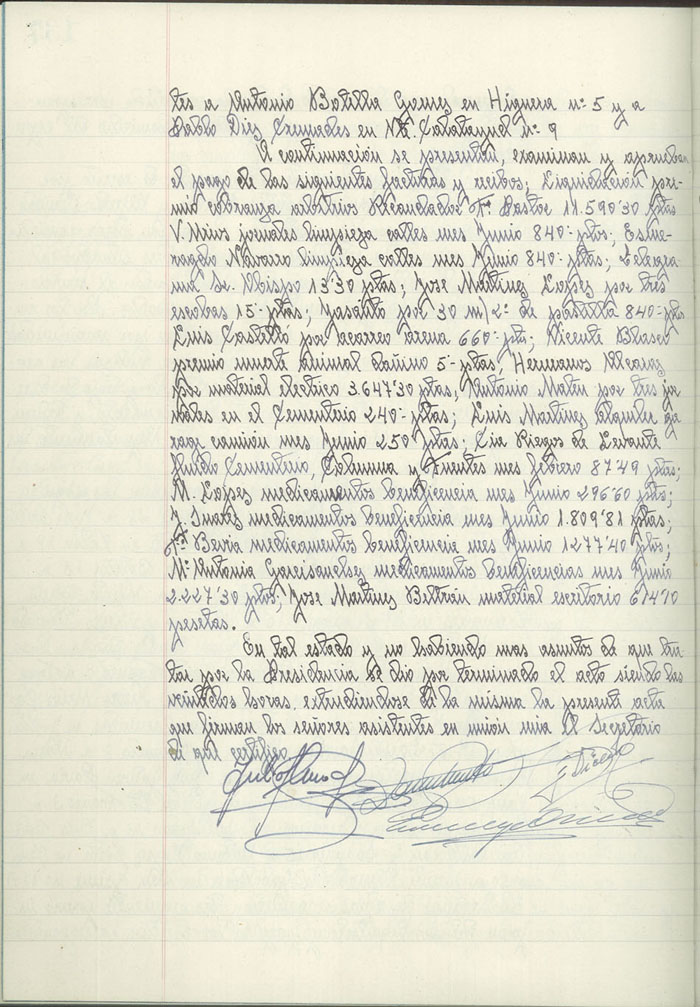 tes a Antonio Botella Gomez en Higuera nº 5 y a
Pablo Diez Cremades en Calatayud nº 9
A continuación se presentan, examinan y aprueban
el pago de las siguientes facturas y recibos; Liquidación pre-
mio cobranza arbitrios Recaudador Fº Pastor 11.590'30 ptas
V. Mius jornales limpieza calles mes Junio 840'- ptas; Esme-
ragdo Navarro limpieza calles mes Junio 840'- ptas; Telegra
ma Sr. Obispo 13'30 ptas; Jose Martinez Lopez por tres
escobas 15'- ptas; por 30 m/2º de 840'- ptas
Luis Castelló por acarreo arena 660'- ptas; Vicente Blasco
premio muerte animal dañino 5'- ptas; Hermanos Alcaraz
por material electrico 3.647'30 ptas, Antonio Mateu por tres jor
nales en el Cementerio 240'- ptas; Luis Martinez alquiler ga
rage camión mes Junio 250 ptas; Cia Riegos de Levante
fluido Cementerio, Columna y Fuentes mes febrero 87'49 ptas;
M. Lopez medicamentos beneficencia mes Junio 296'60 ptas;
J. Suarez medicamentos beneficencia mes Junio 1.809'81 ptas;
Fº Bevia medicamentos beneficencia mes Junio 1277'40 ptas;
Mª Antonia Garcisanchez medicamentos beneficencias mes Junio
2.227'30 ptas; Jose Martinez Beltrán material escritorio 614'70
pesetas.
En tal estado y no habiendo mas asuntos de que tra
tar por la Presidencia se dio por terminado el acto siendo las
veintidos horas. extendiendose de la misma la presente acta
que firman los señores asistentes en unión mia El Secretario
de que certifico